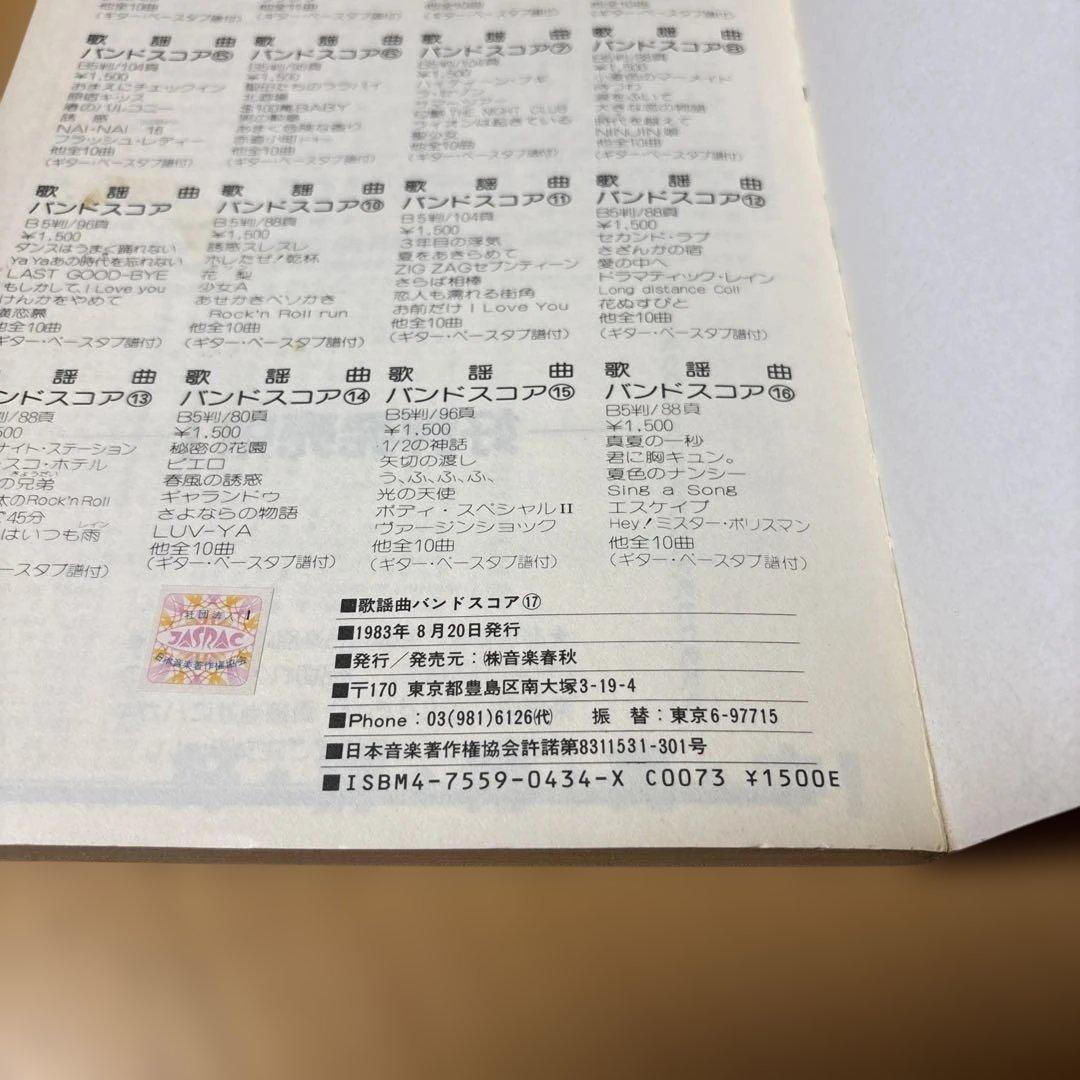 他全10曲
(ギター・ベースタブ譜付)
歌謡曲
バンドスコア⑤
B5判/104頁
¥1,500
おまえにチェックイン
原宿キッス
渚のバルコニー
誘惑
NAI・NAI 16
フラッシュ・レディー
他全10曲
(ギター・ベースタブ譜付)
歌謡曲
バンドスコア⑥
B5判/96頁
¥1,500
聖母たちのララバイ
北酒場
100%BABY
あまく危険な香り
赤道小町
他全10曲
(ギター・ベースタブ譜付)
歌謡曲
バンドスコア⑦
B5判/104頁
¥1,500
ハイティーン・ブギ
NIGHT CLUB
ライオンは起きている
他全10曲
(ギター・ベースタブ譜付)
歌謡曲
バンドスコア⑧
B5判/88頁
¥1,500
小麦色のマーメイド
待つわ
大きな恋の物語
時代を超えて
NINJIN娘
他全10曲
(ギター・ベースタブ譜付)
歌謡曲
バンドスコア
B5判/96頁
¥1,500
ダンスはうまく踊れない
Ya Yaあの時代を忘れない
LAST GOOD-BYE
もしかして, I Love you
けんかをやめて
横恋慕
他全10曲
ギター・ベースタブ譜付)
歌謡曲
バンドスコア⑩
B5判/88頁
¥1,500
誘惑スレスレ
ホレたぜ!乾杯
花梨
少女A
あせかきベソかき
Rock'n Roll run
他全10曲
(ギター・ベースタブ譜付)
歌謡曲
バンドスコア⑪
B5判/104頁
¥1,500
3年目の浮気
夏をあきらめて
ZIG ZAGセブンティーン
さらば相棒
恋人も濡れる街角
お前だけ I Love You
他全10曲
(ギター・ベースタブ譜付)
歌謡曲
バンドスコア⑫
B5判/88頁
¥1,500
セカンド・ラブ
さざんかの宿
愛の中へ
ドラマティック・レイン
Long distance Coll
花ぬすびと
他全10曲
(ギター・ベースタブ譜付)
謡曲
ンドスコア⑬
/88頁
500
ナイト・ステーション
スコ・ホテル
の兄弟
太のRock'n Roll
で45分
はいつも雨
レイン
他全10曲
ベースタブ譜付)
歌謡曲
バンドスコア⑭
B5判/80頁
¥1,500
秘密の花園
ピエロ
春風の誘惑
ギャランドゥ
さよならの物語
LUV-YA
他全10曲
(ギター・ベースタブ譜付)
歌謡曲
バンドスコア⑮
B5判/96頁
¥1,500
1/2の神話
矢切の渡し
う、ふ、ふ、ふ、
光の天使
ボディ・スペシャルII
ヴァージンショック
他全10曲
(ギター・ベースタブ譜付)
歌謡曲
バンドスコア⑯
B5判/88頁
¥1,500
真夏の一秒
君に胸キュン。
夏色のナンシー
Sing a Song
エスケイプ
Hey!ミスター・ポリスマン
他全10曲
(ギター・ベースタブ譜付)
社団法人
JASRAC
日本音楽著作権協会
■歌謡曲バンドスコア⑰
■1983年8月20日発行
■発行/発売元:㈱音楽春秋
■〒170 東京都豊島区南大塚3-19-4
■Phone:03(981)6126㈹ 振替:東京6-97715
■日本音楽著作権協会許諾第8311531-301号
■ISBM4-7559-0434-X C0073 ¥1500E